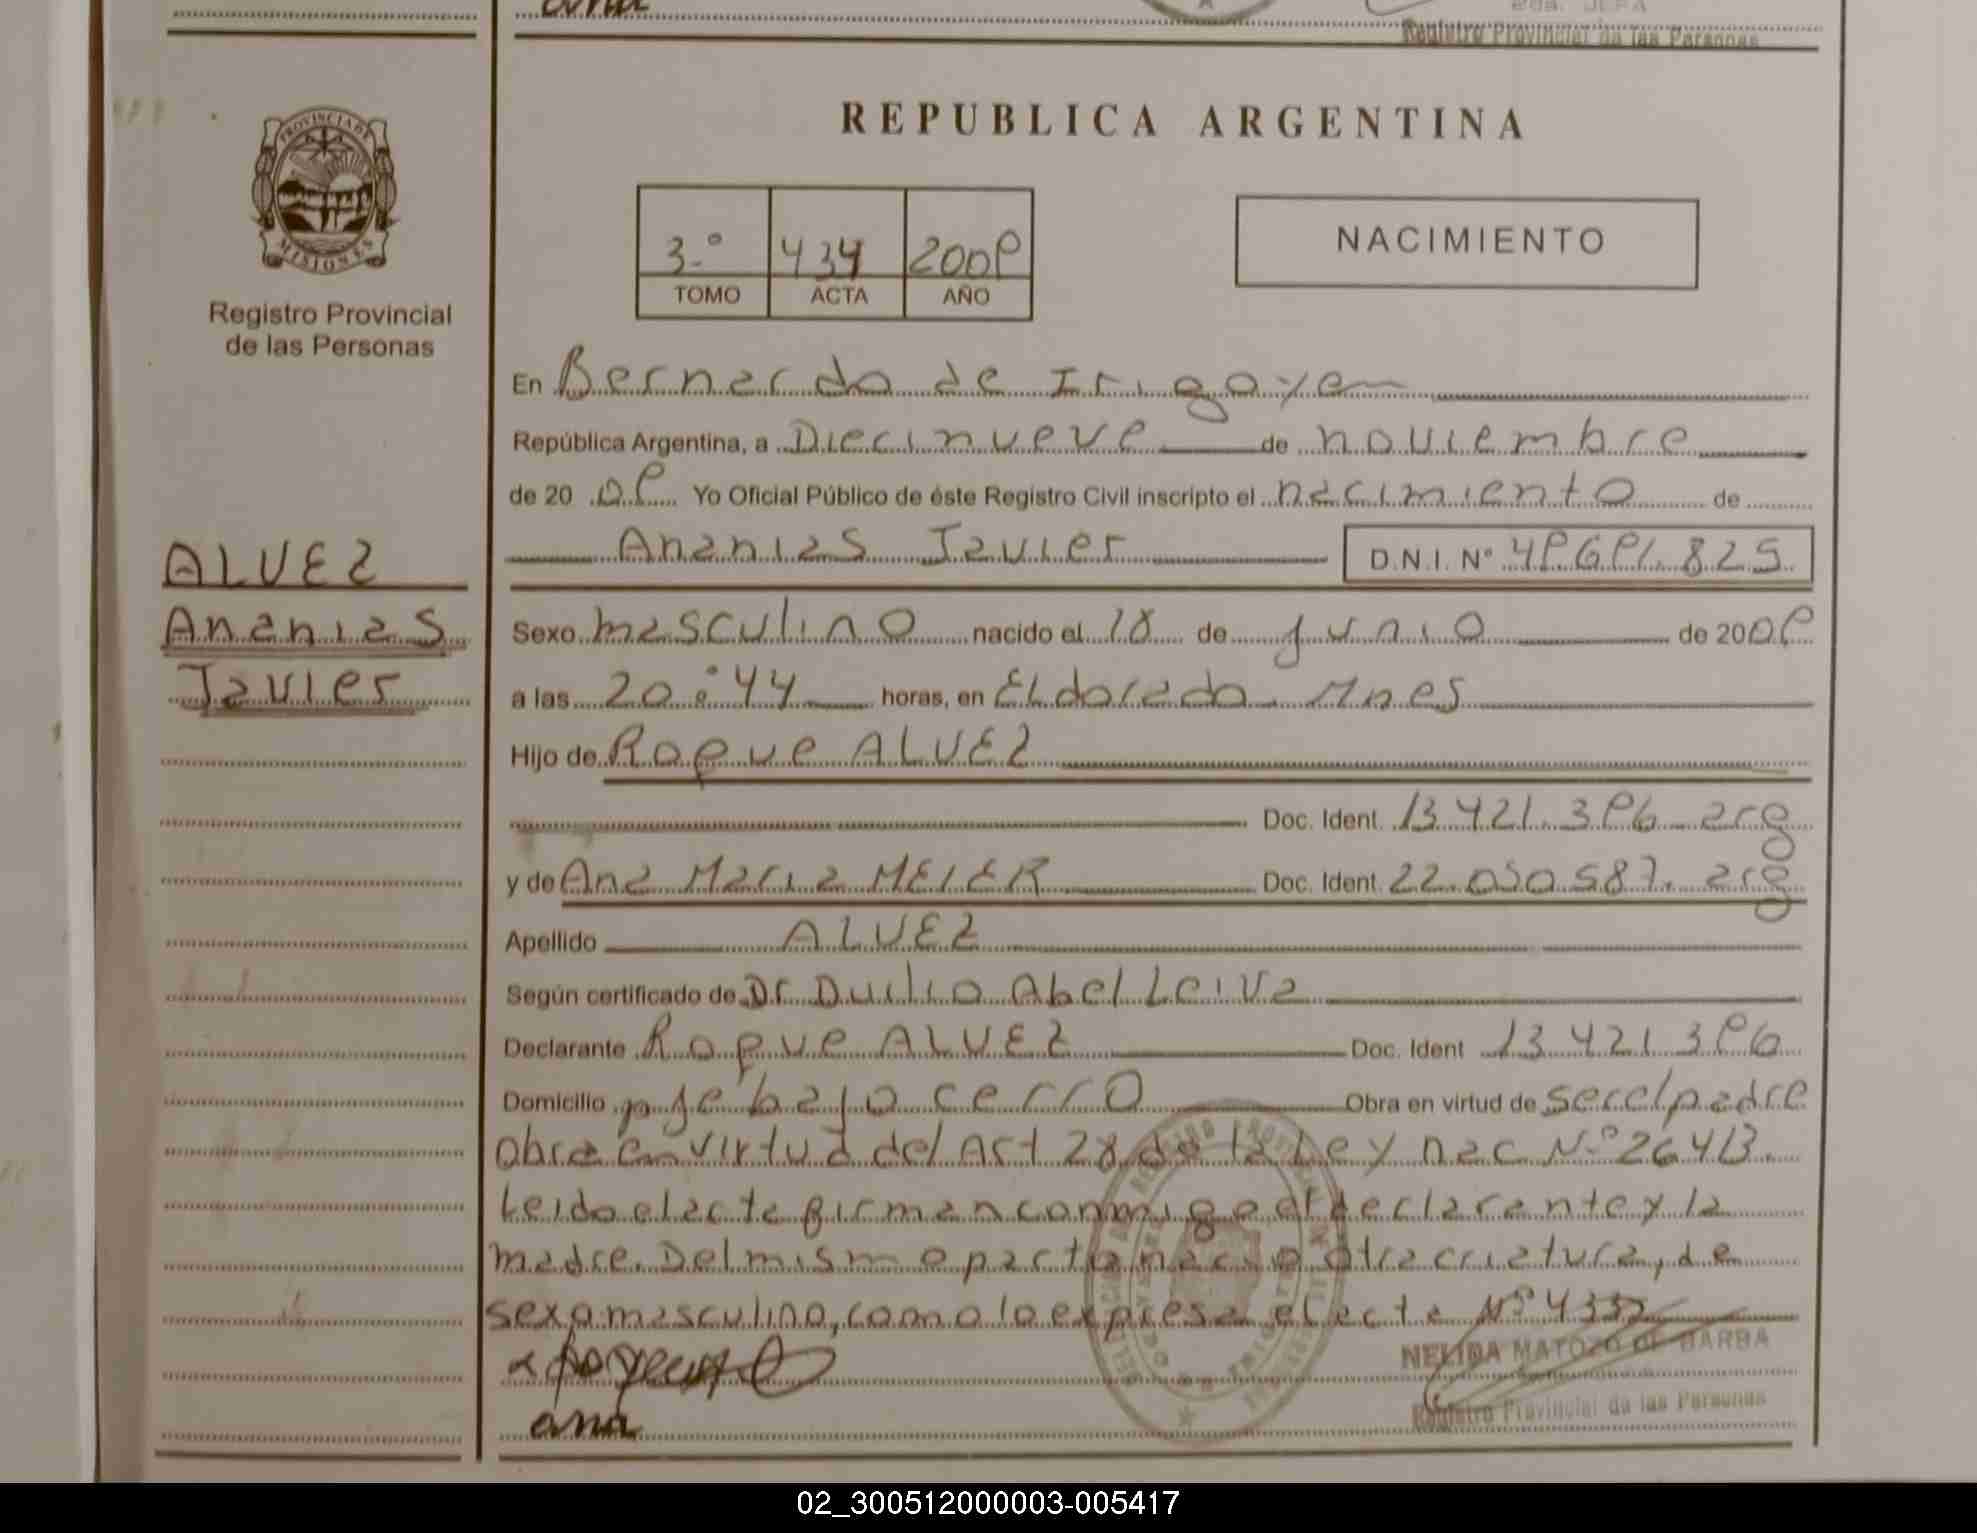 ana
Registro Provincial de las Personas
REPUBLICA ARGENTINA
PROVINCIA DE
MISIONES
Registro Provincial
de las Personas
3º 434 2009
TOMO ACTA AÑO
NACIMIENTO
En Bernardo de Irigoyen
República Argentina, a Diecinueve de noviembre
de 20 09 Yo Oficial Público de éste Registro Civil inscripto el nacimiento de
Ananias Javier D.N.I. Nº 49691.825
ALVEZ
Ananias
Javier
Sexo masculino nacido el 18 de junio de 2009
a las 20:44 horas, en Eldorado Mnes
Hijo de Roque ALVEZ
Doc. Ident. 13.421.396 arg
y de Ana Maria MEIER Doc. Ident. 22.050.587. arg
Apellido ALVEZ
Según certificado de Dr Duilio Abel Leiva
Declarante Roque ALVEZ Doc. Ident 13.421.396
Domicilio pje bajo cerro Obra en virtud de ser el padre
obra en virtud del Art 28 de la Ley nac Nº 26413.
Leido el acta firman conmigo el declarante y la
madre. Del mismo parto nacio otra criatura, de
sexo masculino, como lo expresa el acta Nº 433
NELIDA MATOZO DE BARBA
Registro Provincial de las Personas
ana
02_300512000003-005417